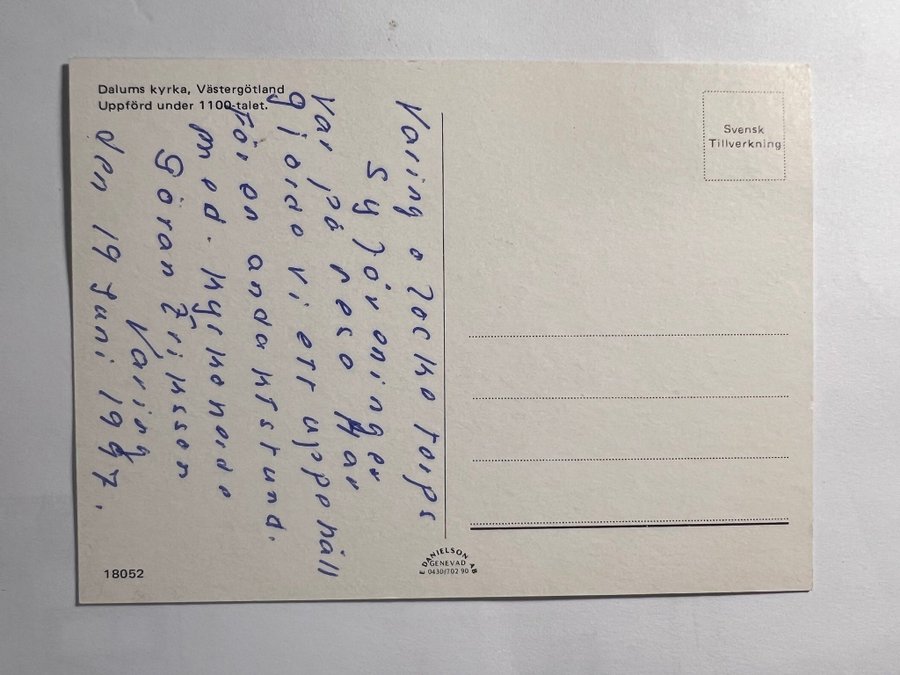 Dalums kyrka, Västergötland
Uppförd under 1100-talet.
Svensk
Tillverkning
Varing o Locke torps
Syföreninger
Var på resa Här
gjorde vi ett uppehåll
För en andaktstund.
med. kyrkoherde
Göran Eriksson
Varing
den 19 Juni 1997.
18052
E DANIELSON AB
GENEVAD
0430/702 90